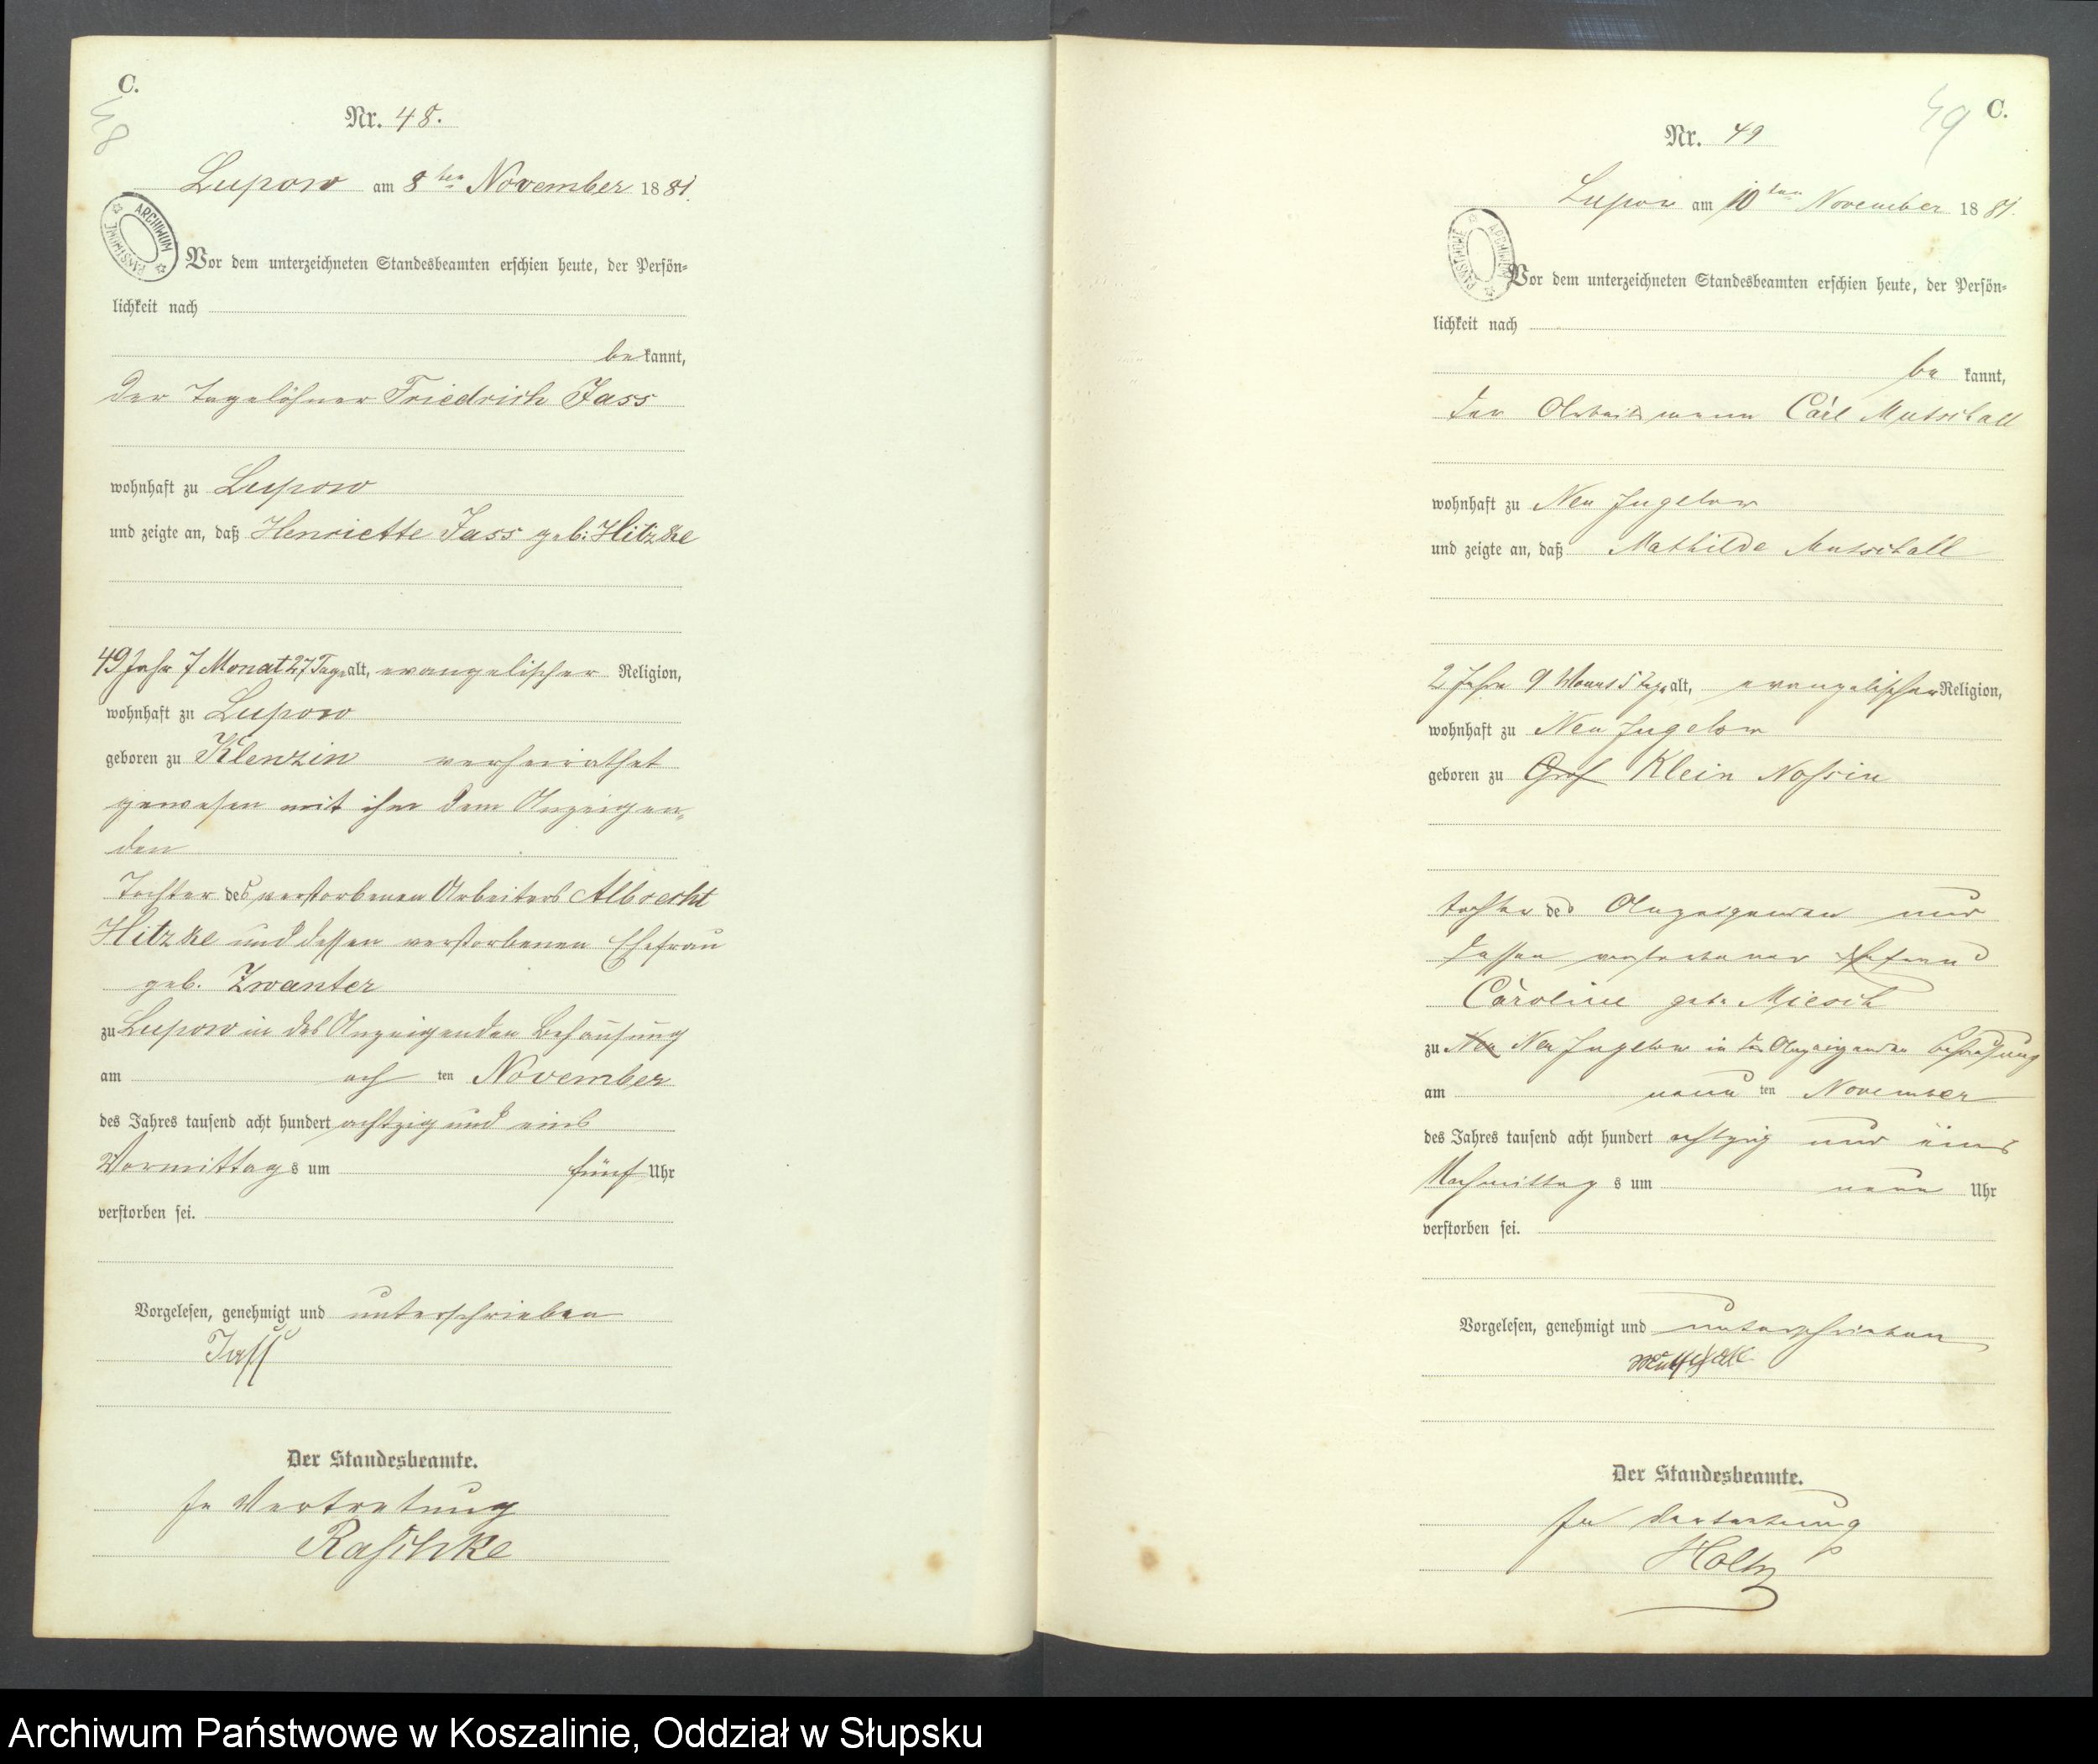 C.
48
Nr. 48.
Lupow am 8ten November 1881.
ARCHIWUM PAŃSTWOWE
Vor dem unterzeichneten Standesbeamten erschien heute, der Persön-
lichkeit nach
bekannt,
der Tagelöhner Friedrich Jass
wohnhaft zu Lupow
und zeigte an, daß Henriette Jass geb: Hitzke
49 Jahr 7 Monat 27 Tage alt, evangelischer Religion,
wohnhaft zu Lupow
geboren zu Klenzin verheirathet
gewesen mit ihm dem Anzeigen-
den
Tochter des verstorbenen Arbeiters Albrecht
Hitzke und dessen verstorbenen Ehefrau
geb. Zwanter
zu Lupow in des Anzeigenden Behausung
am ach ten November
des Jahres tausend acht hundert achtzig und eins
Vormittags um fünf Uhr
verstorben sei.
Vorgelesen, genehmigt und unterschrieben
Jass
Der Standesbeamte.
In Vertretung
Raschke
C.
49
Nr. 49
Lupow am 10ten November 1881.
ARCHIWUM PAŃSTWOWE
Vor dem unterzeichneten Standesbeamten erschien heute, der Persön-
lichkeit nach
be kannt,
der Arbeitsmann Carl Mutschall
wohnhaft zu Neu Jugelow
und zeigte an, daß Mathilde Mutschall
2 Jahre 9 Monat 5 Tage alt, evangelischer Religion,
wohnhaft zu Neu Jugelow
geboren zu Groß Klein Nossin
Tochter des Anzeigenden und
dessen verstorbener Ehefrau
Caroline geb.
zu Neu Neu Jugelow in des Anzeigenden Behausung
am neun ten November
des Jahres tausend acht hundert achtzig und eins
Nachmittag s um neun Uhr
verstorben sei.
Vorgelesen, genehmigt und unterschrieben
Mutschall
Der Standesbeamte.
In Vertretung
Holtz
Archiwum Państwowe w Koszalinie, Oddział w Słupsku